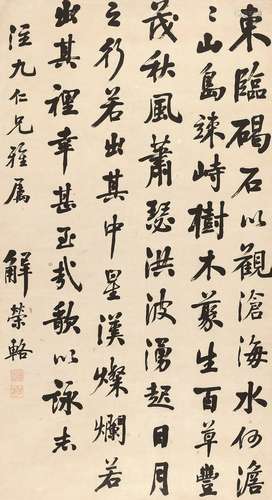 東臨碣石以觀滄海水何澹
〻山島竦峙樹木叢生百草豐
茂秋風蕭瑟洪波湧起日月
之行若出其中星漢燦爛若
出其裡幸甚至哉歌以詠志
九仁兄雅屬
解榮輅